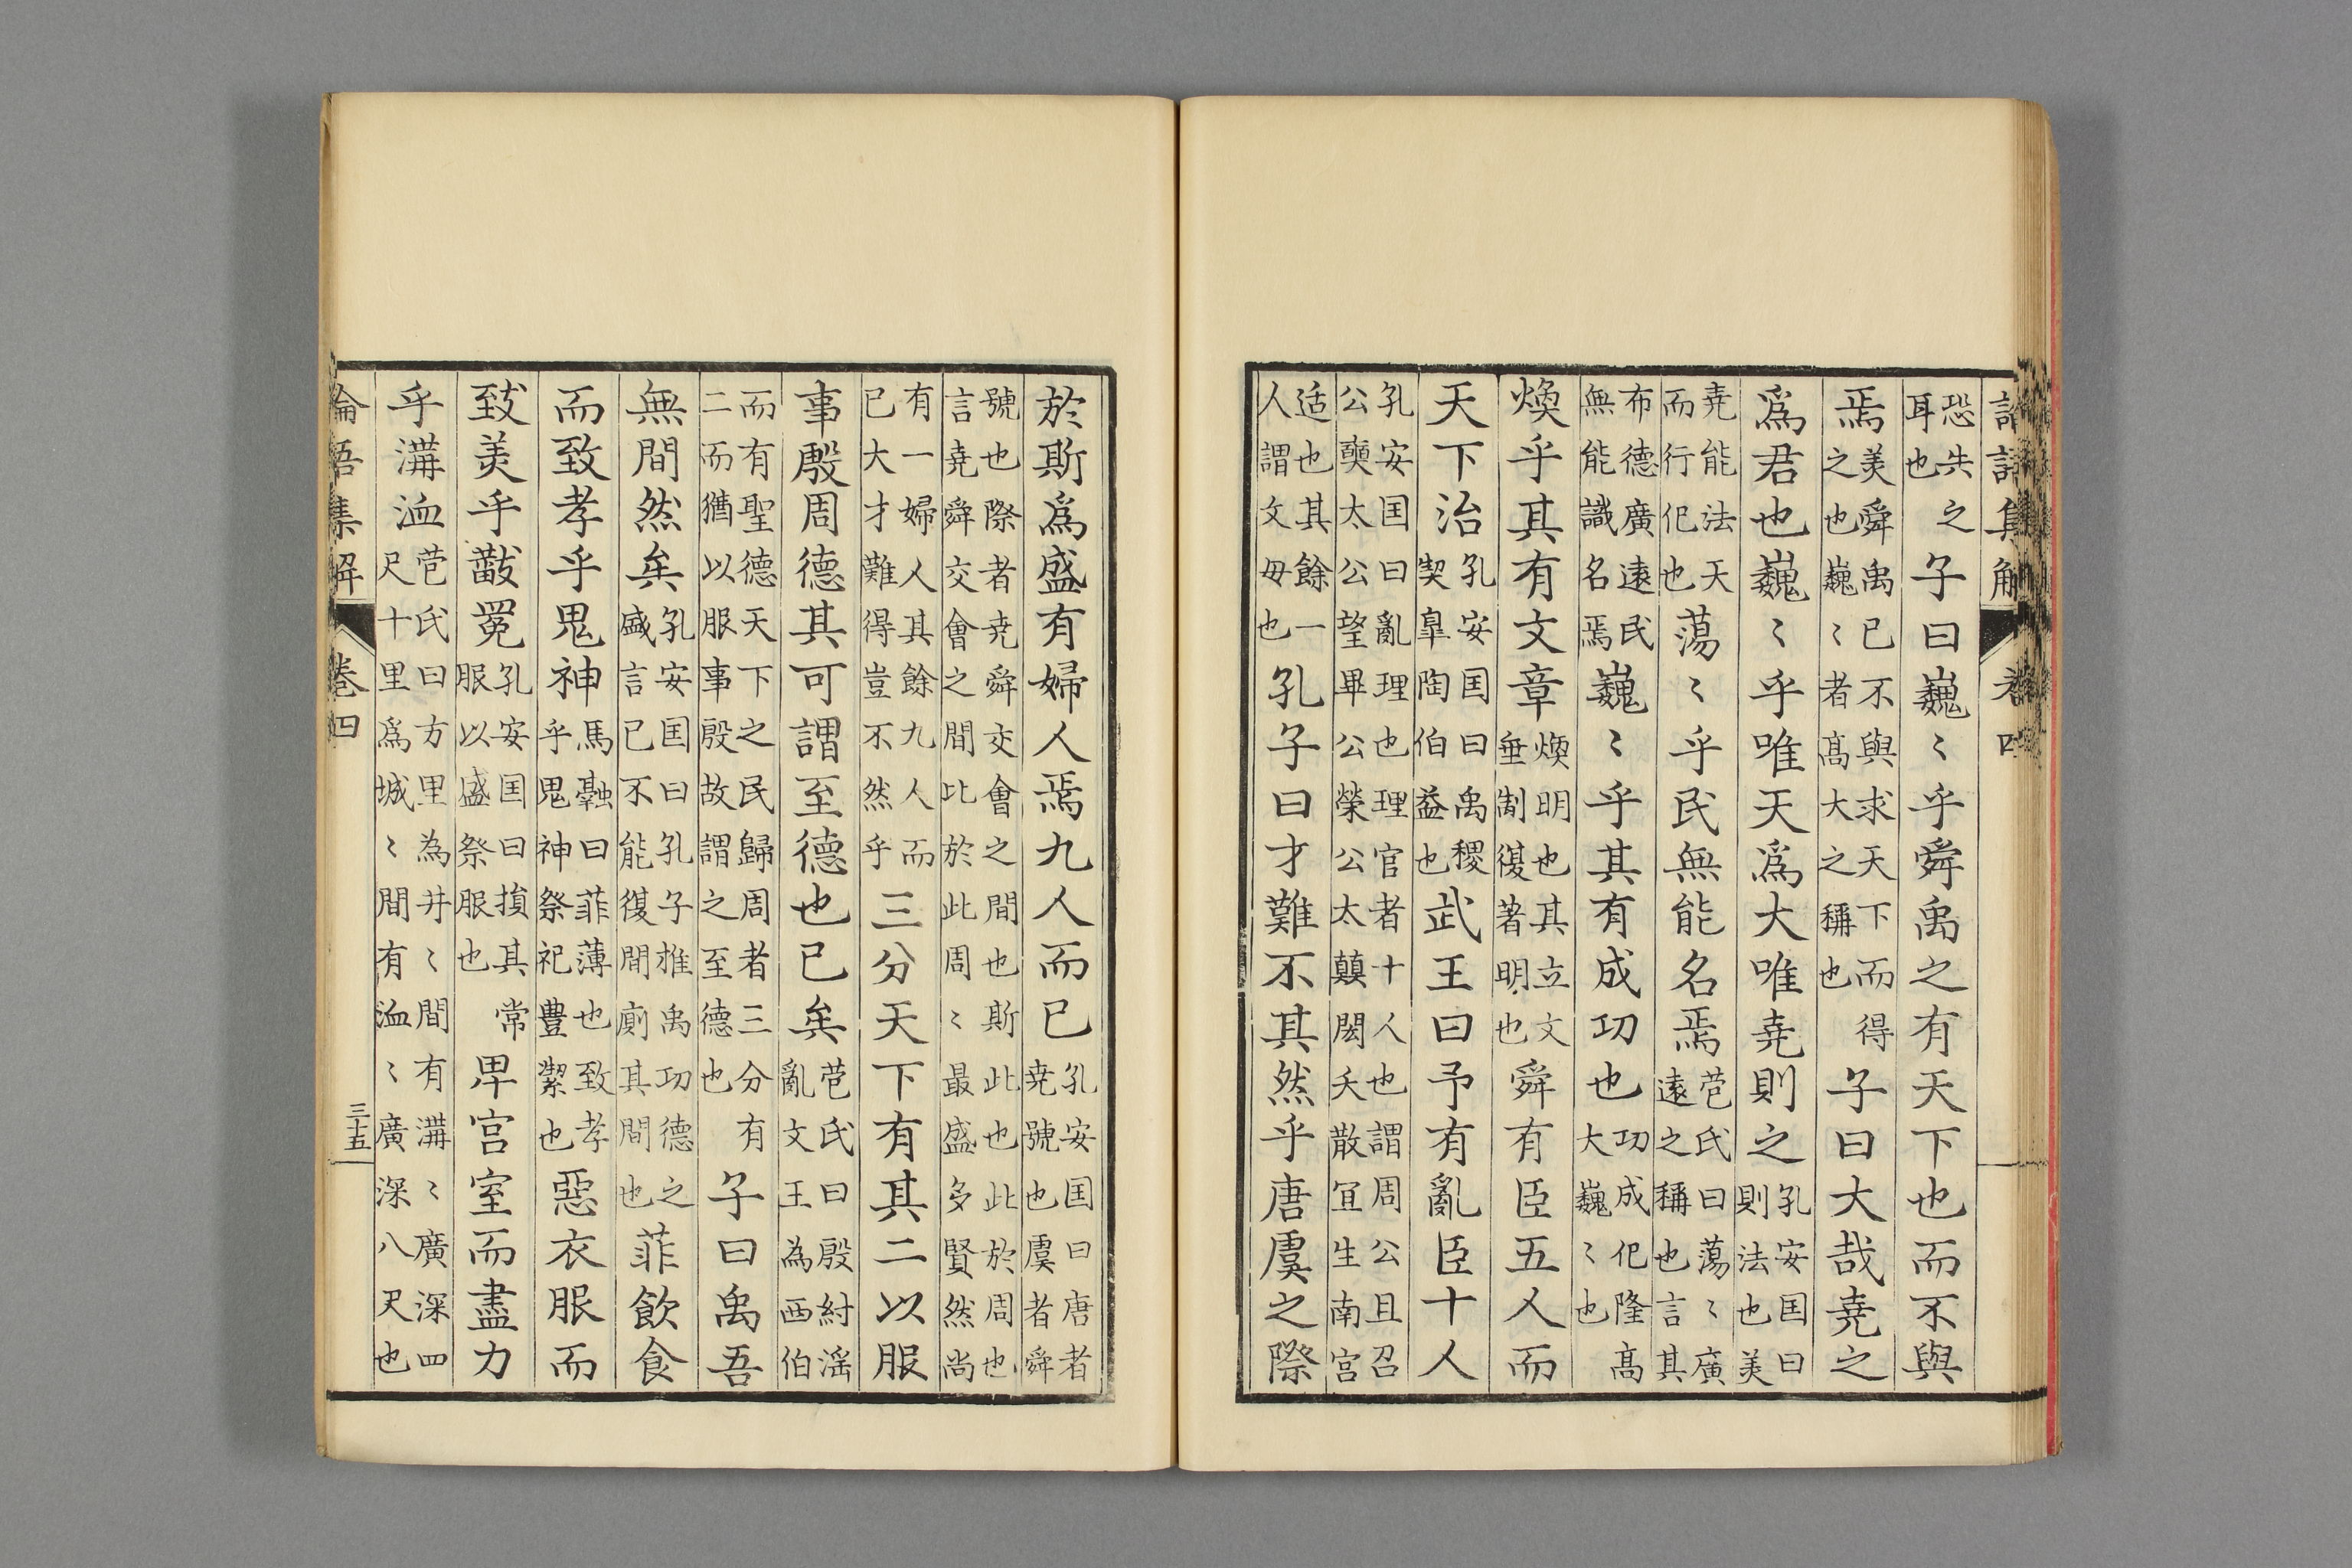 論語集解 卷四
恐失之耳也子曰巍〻乎舜禹之有天下也而不與
焉美舜禹已不與求天下而得之也巍〻者髙大之稱也子曰大哉尭之
爲君也巍〻乎唯天爲大唯尭則之孔安囯曰則法也美
尭能法天而行化也蕩〻乎民無能名焉苞氏曰蕩〻廣遠之稱也言其
布德廣遠民無能識名焉巍〻乎其有成功也功成化隆髙大巍〻也
煥乎其有文章煥明也其立文垂制復著明也舜有臣五人而
天下治孔安囯曰禹稷契臯陶伯益也武王曰予有亂臣十人
孔安囯曰亂理也理官者十人也謂周公且召公奭太公望畢公榮公太顛閎夭散冝生南宮
适也其餘一人謂文母也孔子曰才難不其然乎唐虞之際
於斯爲盛有婦人焉九人而已孔安囯曰唐者尭號也虞者舜
號也際者尭舜交會之間也斯此也此於周也言尭舜交會之間比於此周〻最盛多賢然尚
有一婦人其餘九人而已大才難得豈不然乎三分天下有其二以服
事殷周德其可謂至德也已矣苞氏曰殷紂滛亂文王為西伯
而有聖德天下之民歸周者三分有二而猶以服事殷故謂之至德也子曰禹吾
無間然矣孔安囯曰孔子推禹功德之盛言已不能復間廁其間也菲飲食
而致孝乎鬼神馬融曰菲薄也致孝乎鬼神祭祀豊潔也惡衣服而
致美乎黻冕孔安囯曰損其常服以盛祭服也卑宮室而盡力
乎溝洫苞氏曰方里為井〻間有溝〻廣深四尺十里爲城〻間有洫〻廣深八尺也
論語集解 卷四 三十五